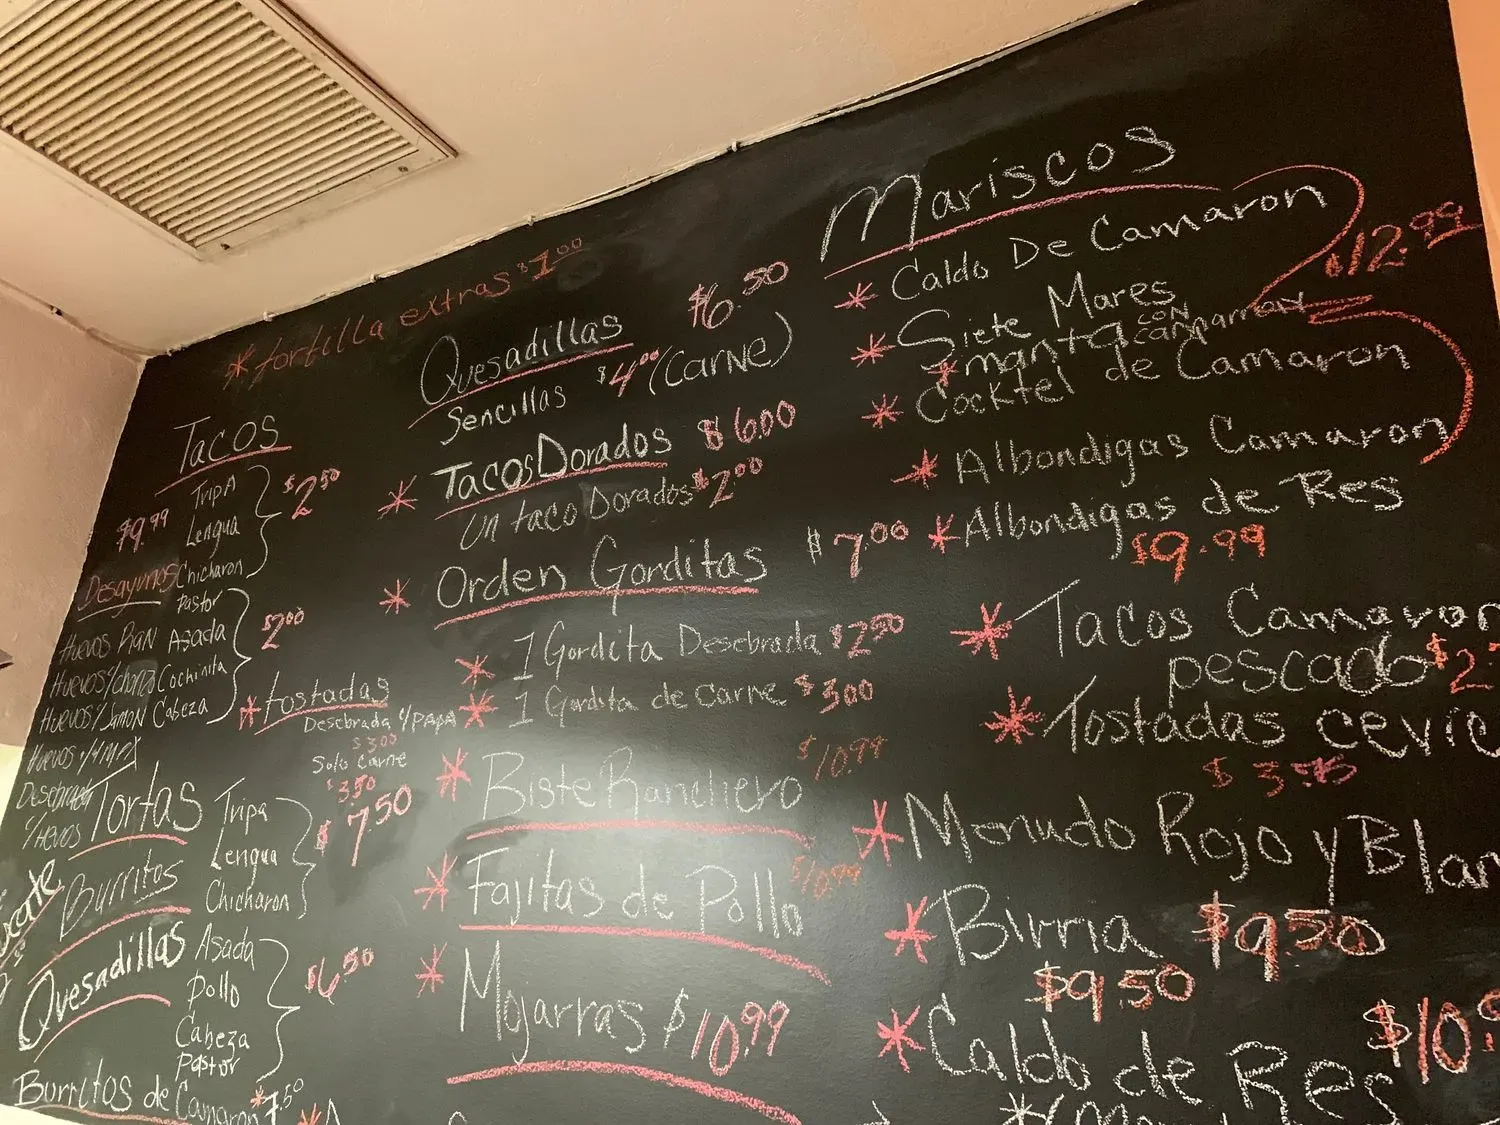 *tortilla extras $1.00
TACOS
Tripa
Lengua
Chicharon
$2.50
$9.99
Desayunos
Pastor
Asada
Cochinita
Cabeza
$2.00
Huevos
Huevos
Huevos
Huevos
*tostadas
Desebrada y/papa
$3.00
Solo Carne
$3.50
Tortas
Burritos
Quesadillas
Tripa
Lengua
Chicharon
$7.50
Asada
Pollo
Cabeza
Pastor
$6.50
Burritos de Camaron $7.50
Quesadillas $6.50
Sencillas $4.00 (CARNE)
* TACOS DORADOS $6.00
Un taco Dorados $2.00
* Orden Gorditas $7.00
* 1 Gordita Desebrada $2.50
* 1 Gordita de carne $3.00
* Biste Ranchero $10.99
* Fajitas de Pollo $10.99
* Mojarras $10.99
Mariscos
* Caldo De Camaron $12.99
* Siete Mares
CON
* Cocktel de Camaron
* Albondigas Camaron
* Albondigas de Res
$9.99
* Tacos Camaron
pescado $2.
* Tostadas cevic
$3.
* Menudo Rojo y Blan
* Birria $9.50
$9.50
* Caldo de Res $10.9